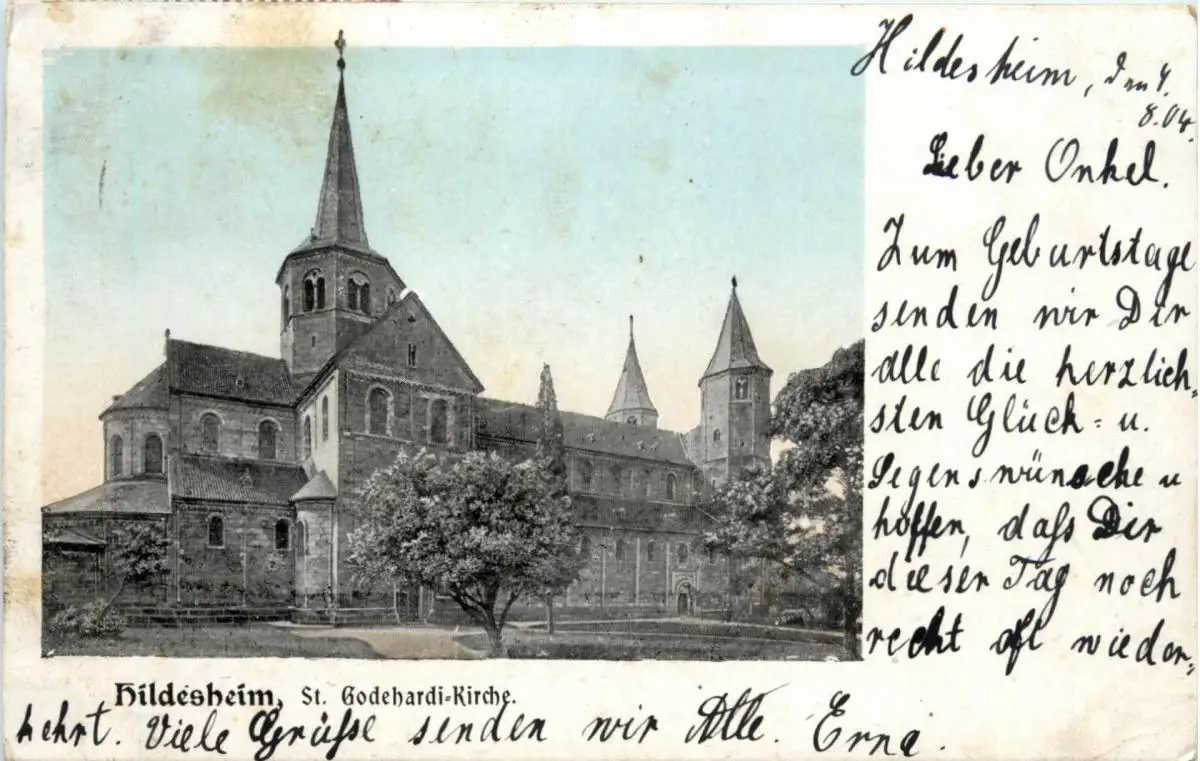 Hildesheim, den 4.
8.04.
Lieber Onkel.
Zum Geburtstage
senden wir Dir
alle die herzlich-
sten Glück- u.
Segenswünsche u
hoffen, daß Dir
dieser Tag noch
recht oft wieder-
kehrt. Viele Grüße senden wir Alle. Erna.
Hildesheim, St. Godehardi-Kirche.